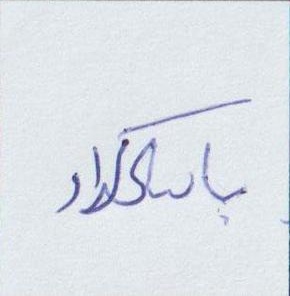 پاسارگاد